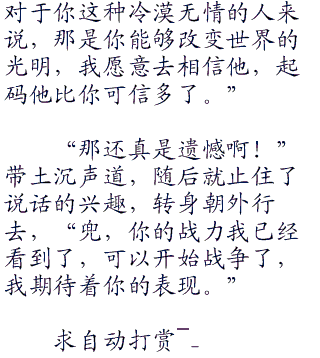 对于你这种冷漠无情的人来
说，那是你能够改变世界的
光明，我愿意去相信他，起
码他比你可信多了。”
“那还真是遗憾啊！”
带土沉声道，随后就止住了
说话的兴趣，转身朝外行
去，“兜，你的战力我已经
看到了，可以开始战争了，
我期待着你的表现。”
求自动打赏¯_